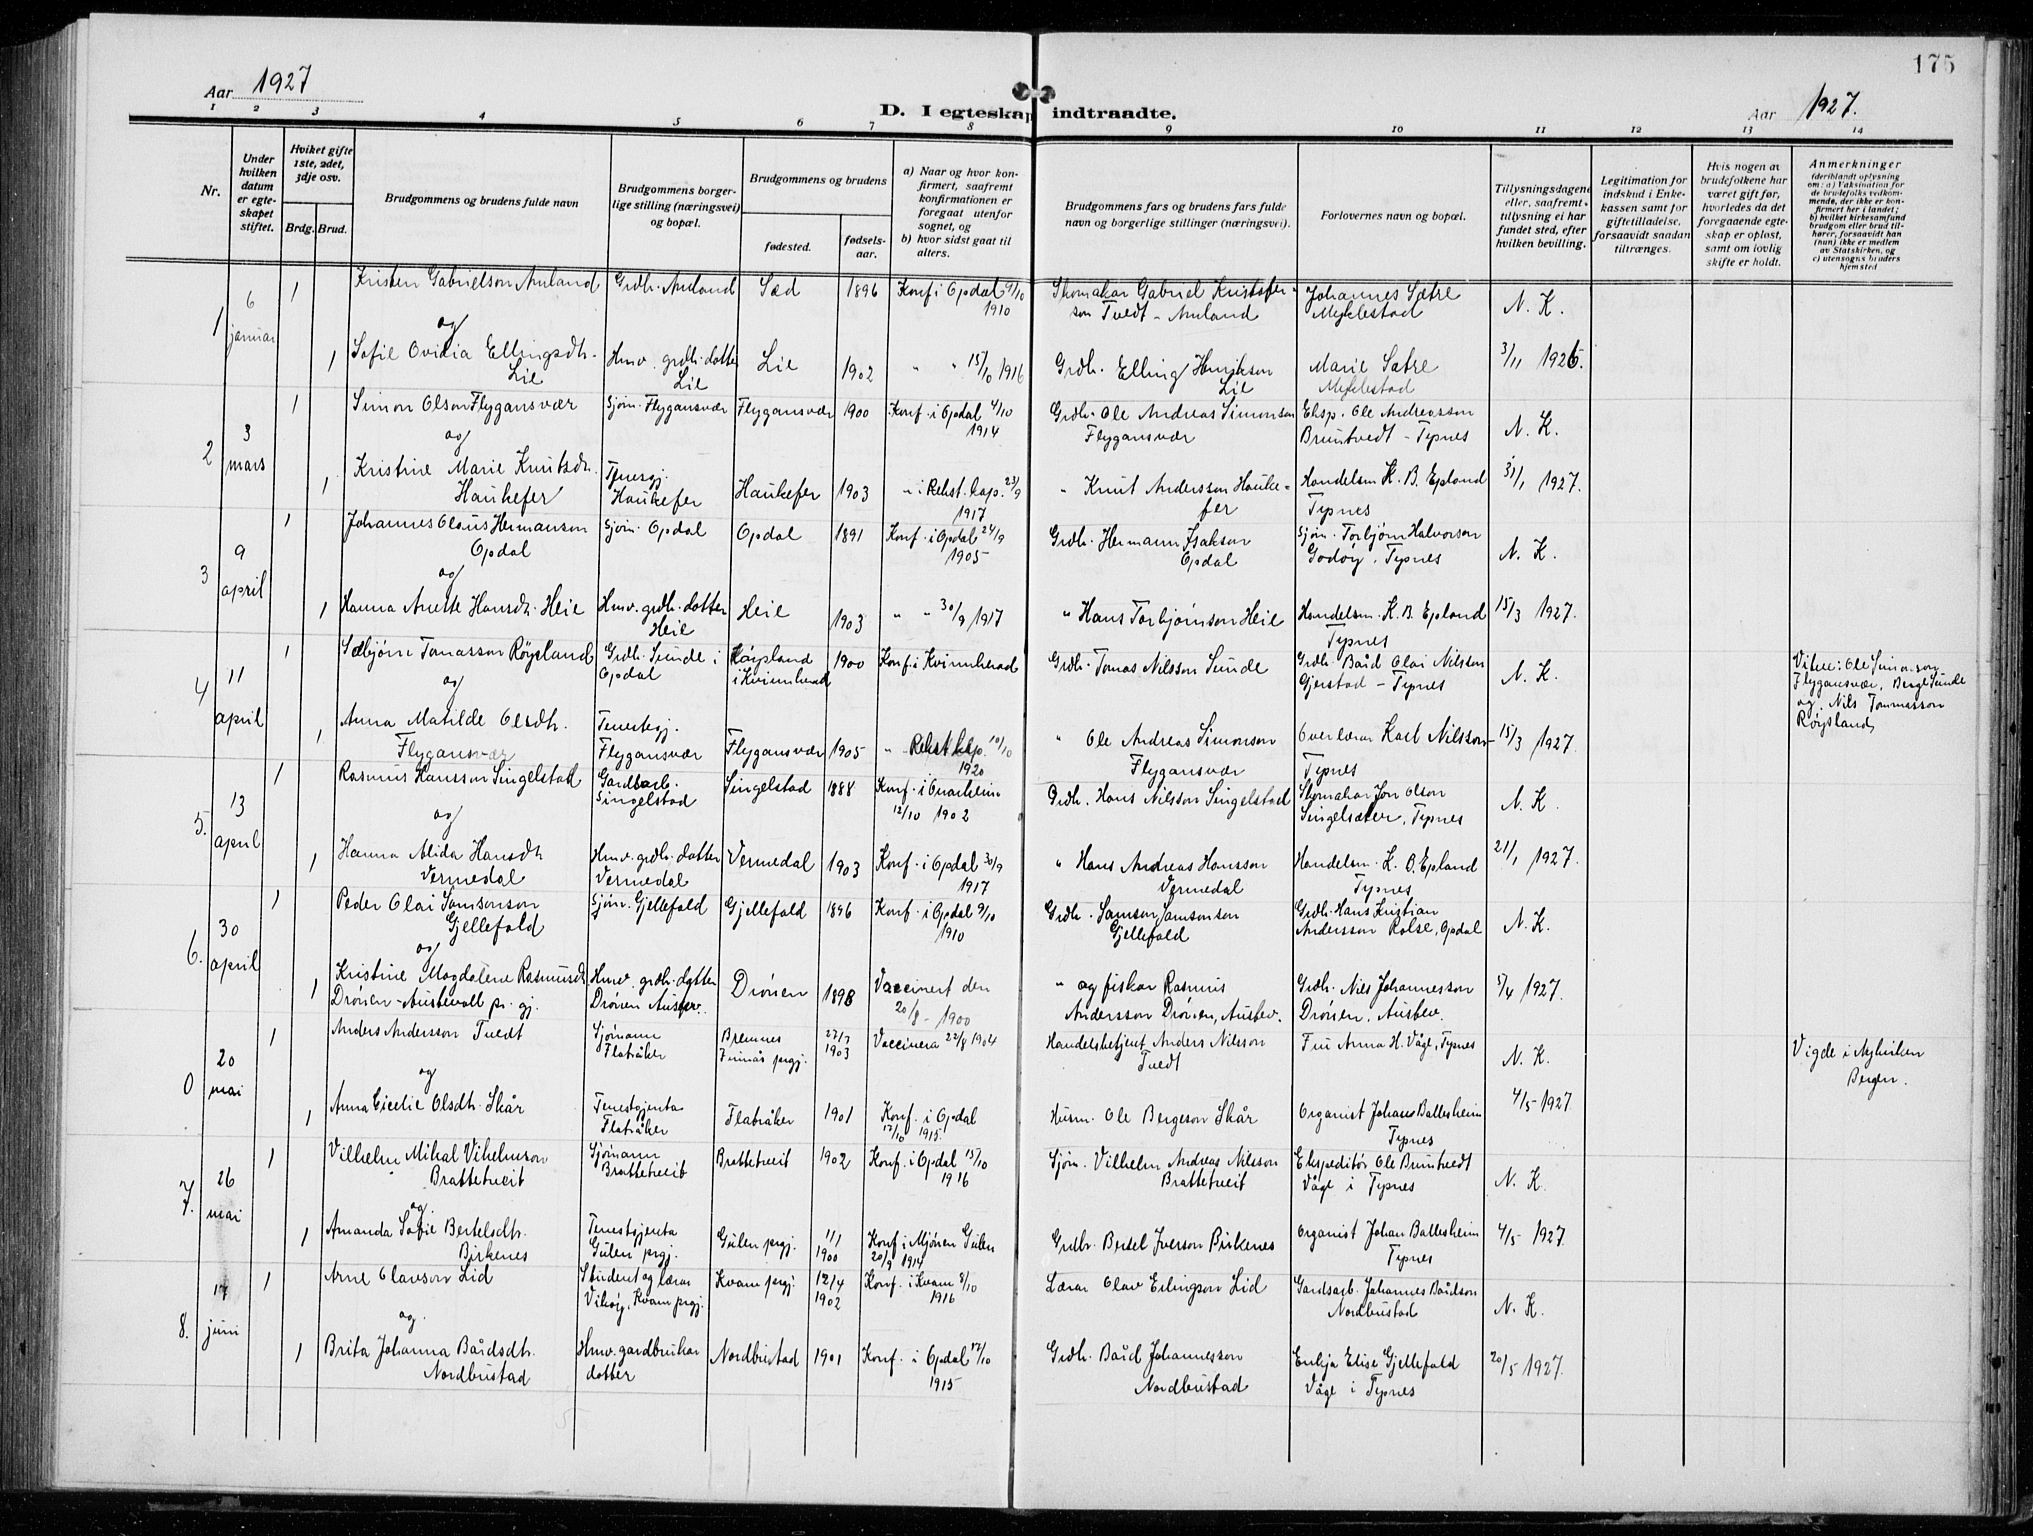 175
Aar 1927
D. I egteskap indtraadte.
Aar 1927.
1 2 3 4 5 6 7 8 9 10 11 12 13 14
Nr.
Under hvilken datum er egteskapet stiftet.
Hviket gifte 1ste, 2det, 3dje osv.
Brdg. Brud.
Brudgommens og brudens fulde navn
Brudgommens borgerlige stilling (næringsvei) og bopæl.
Brudgommens og brudens
fødested.
fødselsaar.
a) Naar og hvor konfirmert, saafremt konfirmationen er foregaat utenfor sognet, og
b) hvor sidst gaat til alters.
Brudgommens fars og brudens fars fulde navn og borgerlige stillinger (næringsvei).
Forlovernes navn og bopæl.
Tillysningsdagene eller, saafremt tillysning ei har fundet sted, efter hvilken bevilling.
Legitimation for indskud i Enkekassen samt for giftetilladelse, forsaavidt saadan tiltrænges.
Hvis nogen av brudefolkene har været gift før, hvorledes da det foregaaende egteskap er opløst, samt om lovlig skifte er holdt.
Anmerkninger (deriblandt oplysning om: a) Vaksination for de brudefolks vedkommende, der ikke er konfirmert her i landet; b) hvilket kirkesamfund brudgom eller brud tilhører, forsaavidt han (hun) ikke er medlem av Statskirken, og c) utensogns bruders hjemsted
1 6 januar
1 Kristen Gabrielson Amland Grdb. Amland Sæd 1896 Konf i Opdal 9/10 1910
Skomakar Gabriel Kristoferson Tvedt - Amland Johannes Sætre Meklestad N. K.
og
1 Sofie Ovidia Ellingsdtr. Lie Hmv. grdb. dotter Lie Lie 1902 " " 15/10 1916
Grdb. Elling Henrikson Lie Marie Sætre Meklestad 3/11 1926.
2 3 mars
1 Simon Olson Flygansvær Sjøm. Flygansvær Flygansvær 1900 Konf. i Opdal 4/10 1914
Grdb. Ole Andreas Simonson Flygansvær Eksp. Ole Andreasson Bruntvedt - Tysnes N. K.
og
1 Kristine Marie Knutsdr. Haukefer Tjenesgj. Haukefer Haukefer 1903 " i Rekst. kap. 23/9 1917
" Knut Andersson Haukefer Handelsm K. B. Epland Tysnes 31/1 1927.
3 9 april
1 Johannes Olaus Hermanson Opdal Sjøm. Opdal Opdal 1891 Konf. i Opdal 24/9 1905
Grdb. Hermann Isakson Opdal Sjøm. Torbjørn Halvorson Godøy, Tysnes N. K.
og
1 Hanna Anette Hansdr. Heie Hmv. grdb. dotter Heie Heie 1903 " " 30/9 1917
" Hans Torbjørnson Heie Handelsm. K. B. Epland Tysnes 15/3 1927.
4 11 april
1 Sæbjørn Tomasson Røysland Grdb. Sunde i Opdal Røysland i Kvinnherad 1900 Konf. i Kvinnherad
Grdb. Tomas Nilsson Sunde Grdb. Baard Olai Nilsson Gjerstad - Tysnes N. K.
Vitne: Ole Simonson Flygansvær, Berge Sunde og Nils Tommasson Røysland
og
1 Anna Matilde Olsdtr. Flygansvær Tenestgj. Flygansvær Flygansvær 1905 " Rekst. kap. 10/10 1920
" Ole Andreas Simonson Flygansvær Overlærar Karl Nilsson Tysnes 15/3 1927.
5. 13 april
1 Rasmus Hansson Singelstad Gardbarb. Singelstad Singelstad 1888 Konf. i Onarheim 12/10 1902
Grdb. Hans Nilsson Singelstad Skomakar Jon Olson Singelsæter, Tysnes N. K.
og
1 Hanna Alida Hansdtr Vermedal Hmv. grdb. dotter Vermedal Vermedal 1903 Konf. i Opdal 30/9 1917
" Hans Andreas Hansson Vermedal Handelsm. K. B. Epland Tysnes 21/1 1927.
6. 30 april
1 Peder Olai Samsonson Gjellefald Sjøm. Gjellefald Gjellefald 1896 Konf. i Opdal 9/10 1910
Grdb. Samson Samsonson Gjellefald Grdb. Hans Kristian Andersson Rolse, Opdal N. K.
og
1 Kristine Magdalene Rasmusdt Drønen - Austevoll pr. gj. Hmv. grdb. dotter Drønen Austev. Drønen 1898 Vaccinert den 20/8 - 1900
" og fiskar Rasmus Andersson Drønen, Austev. Grdb. Nils Johannesson Drønen, Austev. 5/4 1927.
0 20 mai
1 Anders Andersson Tvedt Sjømann Flatråker Bremnes Finnås prgj. 27/7 1903 Vaccinera 22/8 1904
Handelsbetjent Anders Nilsson Tvedt Fru Anna H. Våge, Tysnes N. K.
Vigde i Nykirken Bergen.
og
1 Anna Cicelie Olsdtr. Skår Tenestgjenta Flatråker Flatråker 1901 Konf. i Opdal 17/10 1915
Husm. Ole Bergeson Skår Organist Johan Ballesheim Tysnes 4/5 1927.
7. 26 mai
1 Vilhelm Mikal Vilhelmson Brattetveit Sjømann Brattetveit Brattetveit 1902 Konf. i Opdal 15/10 1916
Sjøm. Vilhelm Andreas Nilsson Brattetveit Ekspeditør Ole Bruntvedt Våge i Tysnes N. K.
og
1 Amanda Sofie Bertelsdtr. Birkenes Tenestgjenta Gulen prgj. Gulen prgj. 11/1 1900 Konf i Mjømen Gulen 20/9 1914
Grdbr. Bertel Iverson Birkenes Organist Johan Ballesheim Tysnes 4/5 1927.
8. 17 juni
1 Arne Olavson Lid Student og lærar Vikøy, Kvam prgj. Kvam prgj. 12/4 1902 Konf. i Kvam 8/10 1916
Lærar Olav Erlingson Lid Gardsarb. Johannes Baardson Nordbustad N. K.
og
1 Brita Johanna Bårdsdtr. Nordbustad Hmv. gardbrukar dotter Nordbustad 1901 Konf. i Opdal 17/10 1915
Grdb. Baard Johannesson Nordbustad Enkja Elise Gjellefald Våge i Tysnes 20/5 1927.